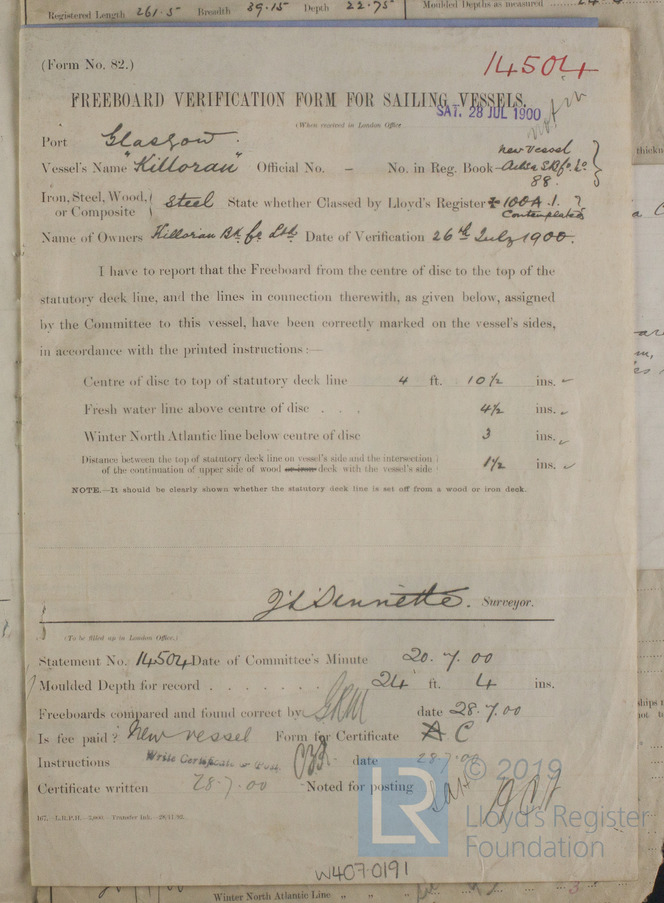 Registered Length 261.5 Breadth 39.15 Depth 22.75 Moulded Depths as measured
(Form No. 82.)
14504
FREEBOARD VERIFICATION FORM FOR SAILING VESSELS.
SAT. 28 JUL 1900
not in
(When received in London Office
Port Glasgow.
new vessel
Vessel's Name "Killoran" Official No. - No. in Reg. Book -
88.
Iron, Steel, Wood, or Composite Steel State whether Classed by Lloyd's Register 100A.1. ?
Contemplated
Name of Owners Killoran Ltd Date of Verification 26th July 1900.
I have to report that the Freeboard from the centre of disc to the top of the
statutory deck line, and the lines in connection therewith, as given below, assigned
by the Committee to this vessel, have been correctly marked on the vessel's sides,
in accordance with the printed instructions :—
Centre of disc to top of statutory deck line 4 ft. 10½ ins.
Fresh water line above centre of disc . . . 4½ ins.
Winter North Atlantic line below centre of disc 3 ins.
Distance between the top of statutory deck line on vessel's side and the intersection
of the continuation of upper side of wood or iron deck with the vessel's side 1½ ins.
NOTE.—It should be clearly shown whether the statutory deck line is set off from a wood or iron deck.
Surveyor.
(To be filled up in London Office.)
Statement No. 14504 Date of Committee's Minute 20.7.00
Moulded Depth for record . . . . . . . 24 ft. 4 ins.
Freeboards compared and found correct by date 28.7.00
Is fee paid? New vessel Form for Certificate A C
Instructions Write Certificate & Post date 28.7.00
Certificate written 28.7.00 Noted for posting
© 2019
LR
Lloyd's Register
Foundation
W407-0191
Winter North Atlantic Line " " "